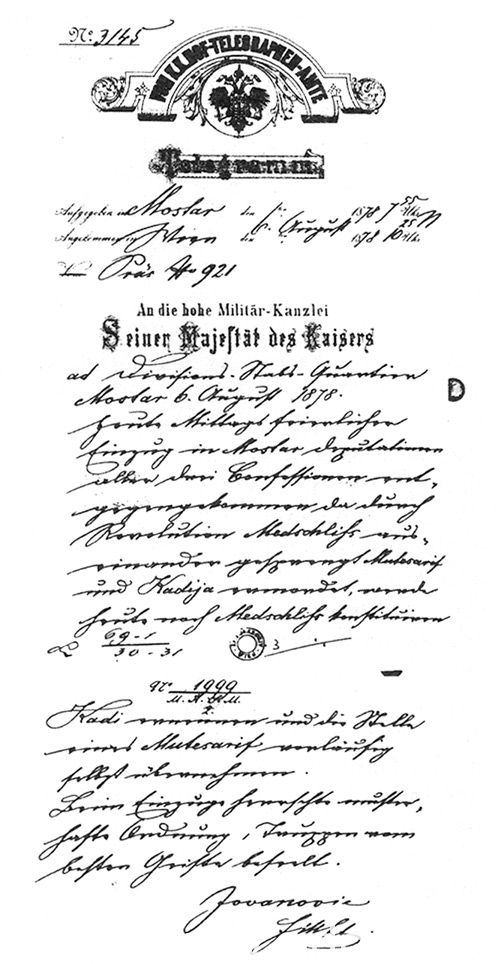 No. 3145
VOM K.K. HOF-TELEGRAPHEN-AMTE
Telegramm.
Aufgegeben in Mostar den 6. August 1878 7 55 Uhr M
Angekommen in Wien den 6. August 1878 10 25 Uhr
Präs No 921
An die hohe Militär-Kanzlei
Seiner Majestät des Kaisers
ad Divisions-Stabs-Quartier
Mostar 6. August 1878.
Heute Mittags feierlicher
Einzug in Mostar deputationen
aller drei Confessionen ent-
gegengekommen da durch
Revolution Medschliss aus-
einander gesprengt Mutesarif
und Kadija ermordet, werde
heute noch Medschliss konstituiren
69-1
30-31
3
D
1999
M. A. K. M.
Kadi ernennen und die Stelle
eines Mutesarif vorläufig
selbst übernehmen.
Beim Einzuge herrschte muster-
hafte Ordnung, Truppen vom
besten Geiste beseelt.
Jovanovic